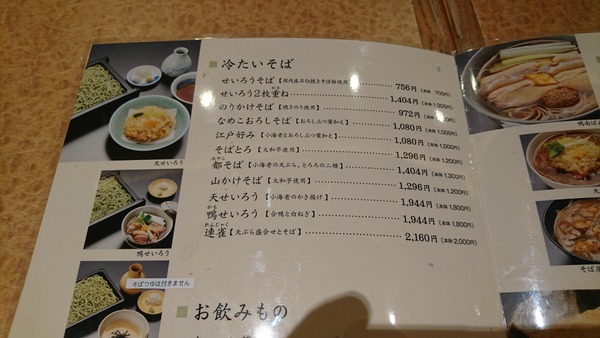 冷たいそば
せいろうそば【国内産石臼挽きそば粉使用】 756円(本体 700円)
せいろう2枚重ね 1,404円(本体 1,300円)
のりかけそば【焼きのり使用】 972円(本体 900円)
なめこおろしそば【おろし三つ葉和え】 1,080円(本体 1,000円)
江戸好み【小海老とおろし三つ葉和え】 1,080円(本体 1,000円)
そばとろ【大和芋使用】 1,296円(本体 1,200円)
都そば【小海老の天ぷら、とろろの二種】 1,404円(本体 1,300円)
山かけそば【大和芋使用】 1,296円(本体 1,200円)
天せいろう【小海老のかき揚げ】 1,944円(本体 1,800円)
鴨せいろう【合鴨と白ねぎ】 1,944円(本体 1,800円)
連雀【天ぷら盛合せとそば】 2,160円(本体 2,000円)
お飲みもの
天せいろう
鴨せいろう
そばつゆは付きません